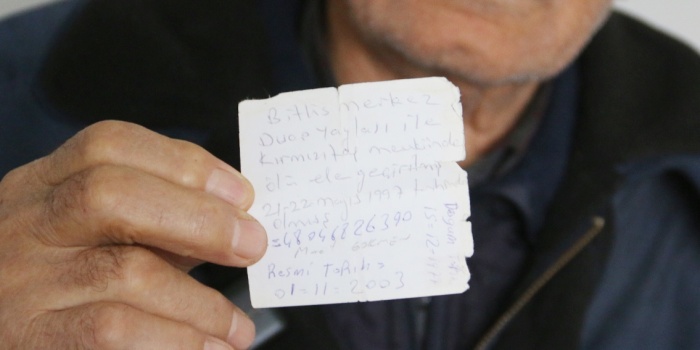 Bitlis merkez
Duap Yaylası ile
Kırmızıtaş mevkinde
ölü ele geçirilmiş
21-22 mayıs 1997
ölmüş
=48046826390
Resmi Tarihi
01=11=2003
Doğum
15=12=